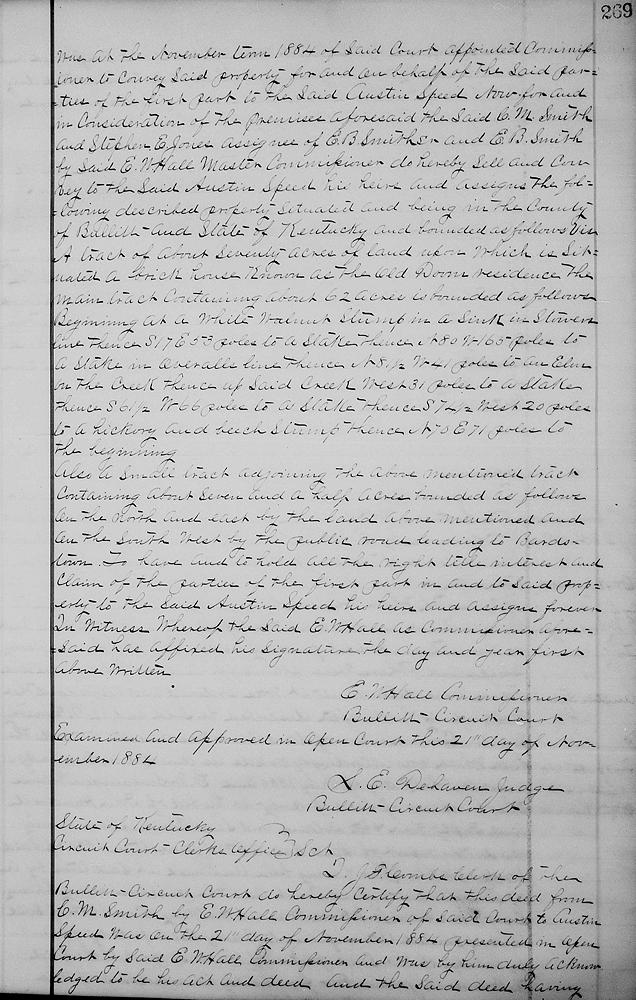 269
was at the November term 1884 of Said Court appointed Commiss-
ioner to Convey Said property for and on behalf of the Said par=
=ties of the first part to the Said Austin Speed Now for and
in Consideration of the premises aforesaid the Said C. M. Smith
and Stephen E Jones assignee of E. B. Smith Sr and E. B. Smith
by Said E. W Hall Master Commissioner do hereby Sell and Con
vey to the Said Austin Speed his heirs and assigns the fol=
=lowing described property Situated and being in the County
of Bullitt and State of Kentucky and bounded as follows Viz
A tract of about Seventy acres of land upon which is Sit=
uated a brick house Known as the Old Doom residence the
main tract Containing about 62 acres is bounded as follows
Beginning at a White Walnut Stump in a Sink in Stovers
line thence S 17 E 53 poles to a Stake thence N 80 W 165 poles to
a Stake in Overalls line thence N 81½ W 41 poles to an Elm
on the Creek thence up Said Creek West 31 poles to a Stake
thence S 61½ W 66 poles to a Stake thence S 74½ West 20 poles
to a hickory and beech Stump thence N 70 E 71 poles to
the beginning
Also a Small tract adjoining the above mentioned tract
Containing about Seven and a half acres bounded as follows
on the North and east by the land above mentioned and
on the South West by the public road leading to Bards-
town. To have and to hold all the right title interest and
Claim of the parties of the first part in and to Said prop=
erty to the Said Austin Speed his heirs and assigns forever
In Witness Whereof the Said E. W Hall as Commissioner afore=
=Said has affixed his Signature the day and year first
above Written
E. W Hall Commissioner
Bullitt Circuit Court
Examined and approved in open Court this 21st day of Nov-
ember 1884
S. E. Dehaven Judge
Bullitt Circuit Court
State of Kentucky
Circuit Court Clerks Office } Sct
I. J. F. Combs Clerk of the
Bullitt Circuit Court do hereby Certify that this deed from
C. M. Smith by E. W Hall Commissioner of Said Court to Austin
Speed Was on the 21st day of November 1884 presented in open
Court by Said E. W Hall Commissioner and was by him duly acknow
ledged to be his act and deed and the Said deed having